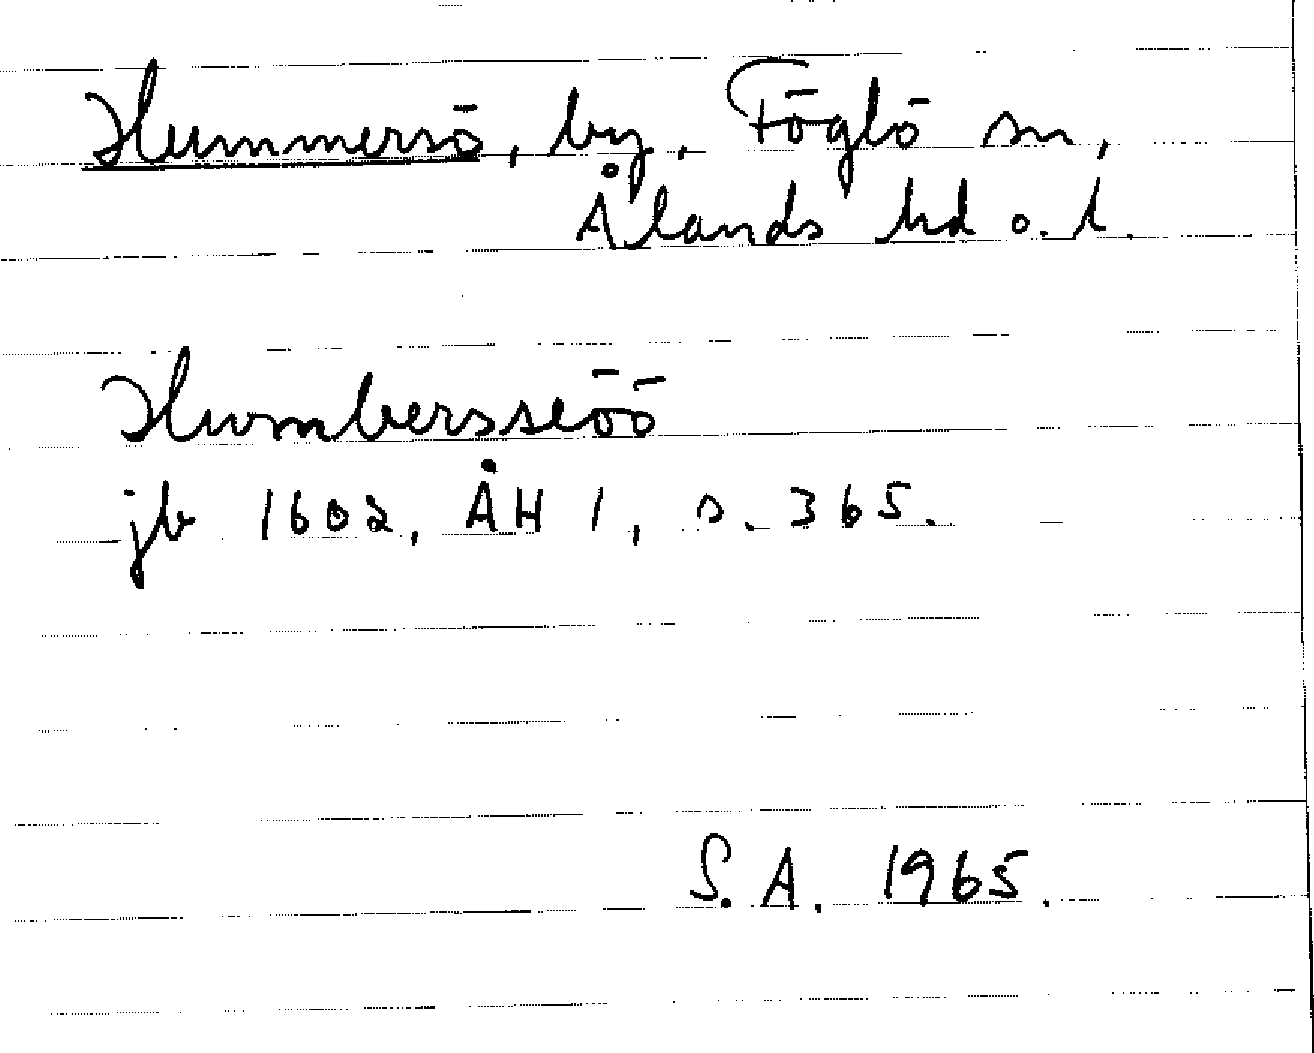 Hummersö, by, Föglö sn,
Ålands hd o. l.
Humbersseöö
jb 1602, ÅH 1, s. 365.
S. A. 1965.